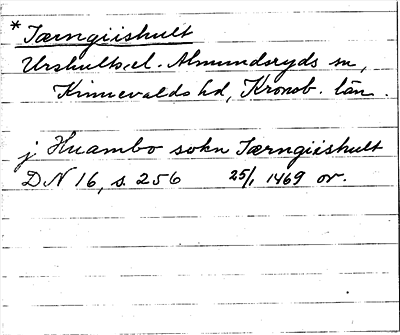 * Tærngiishult
Urshults el. Almundsryds sn,
Kinnevalds hd, Kronob. län.
j Huambo sokn Tærngiishult
DN 16, s. 256 25/1 1469 or.